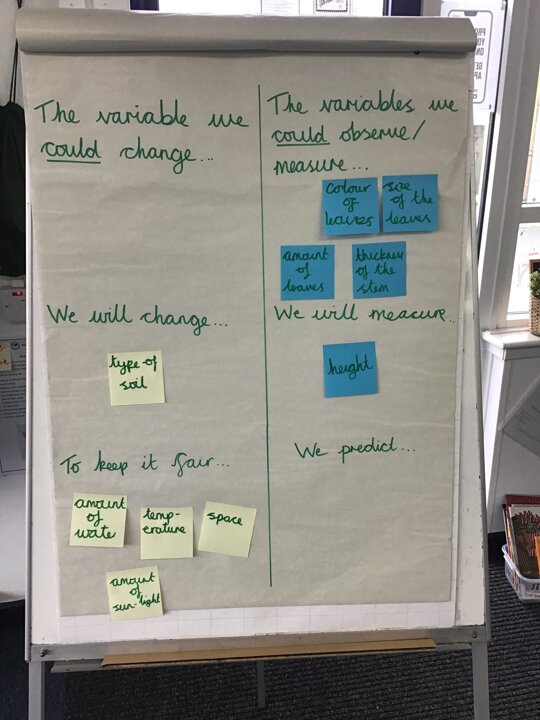 The variable we
could change...
The variables we
could observe/
measure...
colour
of
leaves
size
of the
leaves
amount
of
leaves
thickness
of the
stem
We will change...
type of
soil
We will measure...
height
To keep it fair...
amount
of
wate
temp-
erature
space
amount
of
sun-light
We predict...